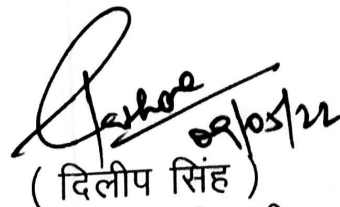 09/05/22
( दिलीप सिंह )